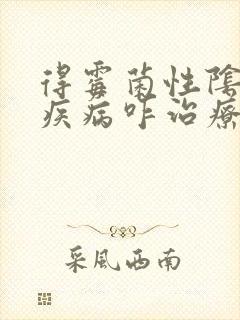 得霉菌性陰
疾病咋治療
采風西南